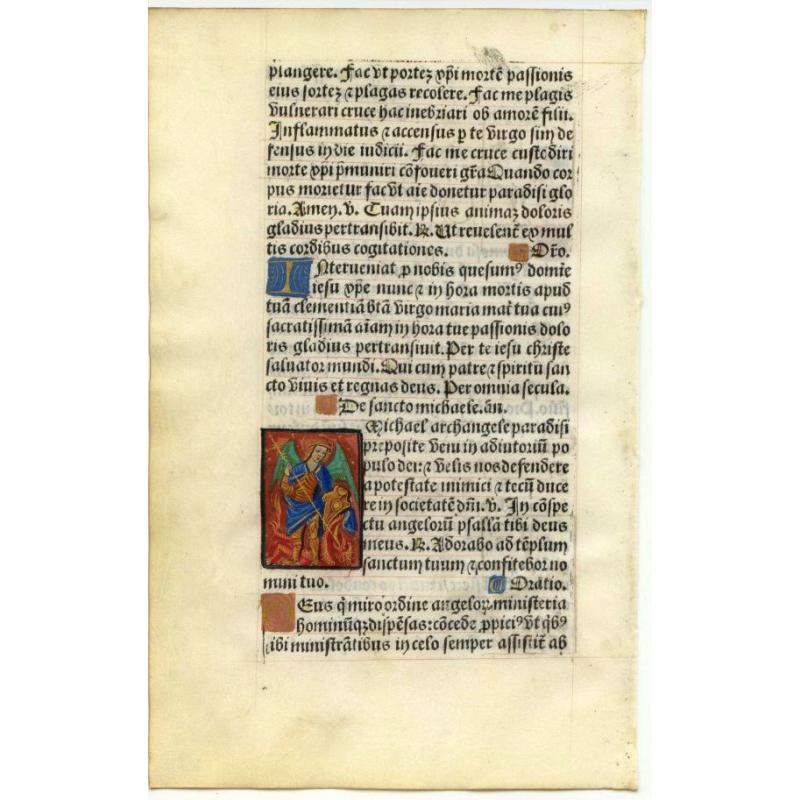 plangere. Fac vt portez xp̄i mortē passionis
eius sortez ⁊ plagas recolere. Fac me plagis
vulnerari cruce hac inebriari ob amorē filii.
Inflammatus ⁊ accensus p te virgo sim de
fensus in die iudicii. Fac me cruce custodiri
morte xp̄i p̄muniri cōfoueri gr̄a Quando cor
pus morietur fac vt aīe donetur paradisi glo
ria. Amen. v. Tuam ipsius animaz doloris
gladius pertransibit. R. Ut reuelent̄ ex mul
tis cordibus cogitationes. Or̄o.
INterueniat p nobis quesumꝰ domīe
iesu xp̄e nunc ⁊ in hora mortis apud
tuā clementiā btā virgo maria mat̄ tua cuiꝰ
sacratissimā aīam in hora tue passionis dolo
ris gladius pertransiuit. Per te iesu christe
saluator mundi. Qui cum patre ⁊ spiritu san
cto viuis et regnas deus. Per omnia secula.
De sancto michaele. añ.
Michael archangele paradisi
preposite veni in adiutoriū po
pulo dei: ⁊ velis nos defendere
a potestate inimici ⁊ tecū duce
re in societatē dn̄i. v. In cōspe
ctu angelorū psallā tibi deus
meus. R. Adorabo ad tēplum
sanctum tuum ⁊ confitebor no
mini tuo. Oratio.
DEus q̄ miro ordine angeloꝝ ministeria
hominūqꝫ dispēsas: cōcede ppiciꝰ vt q̄bꝰ
tibi ministrātibus in celo semper assistit̄ ab